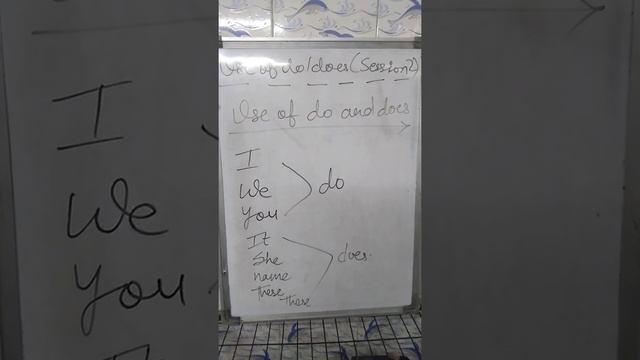 Use of do/does (Session 2)
Use of do and does
I
We
you
do
It
She
name
these
these
does.
I
We
you